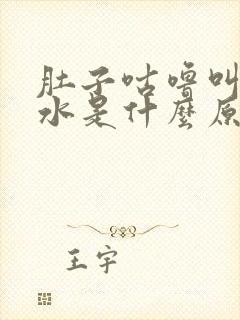 肚子咕噜叫
水是什麼原
王宇